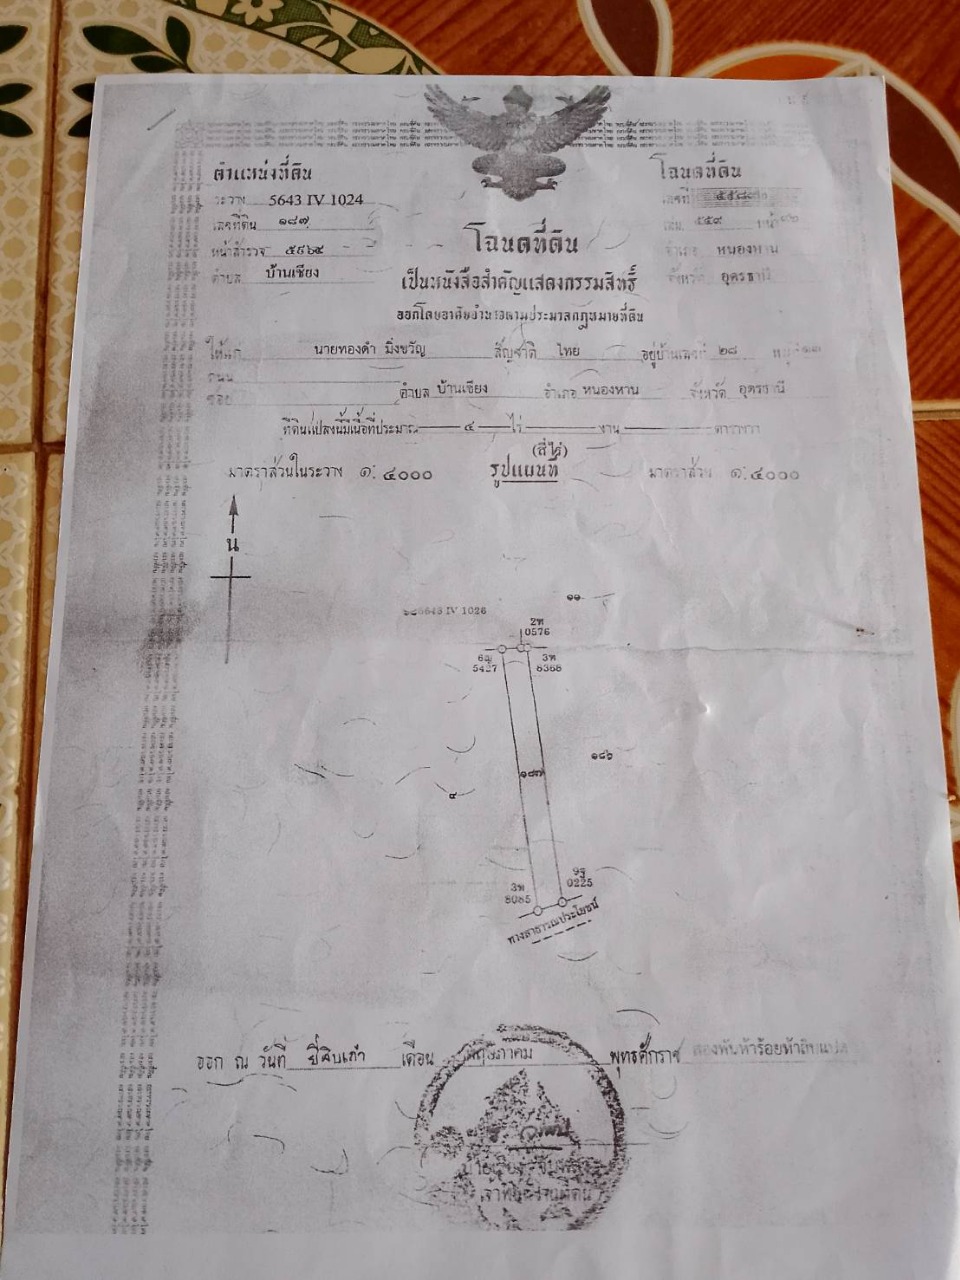 ตำแหน่งที่ดิน
ระวาง 5643 IV 1024
เลขที่ดิน ๑๘๗
หน้าสำรวจ ๕๙๖๙
ตำบล บ้านเชียง
โฉนดที่ดิน
เลขที่
เล่ม ๕๕๙ หน้า
อำเภอ หนองหาน
จังหวัด อุดรธานี
โฉนดที่ดิน
เป็นหนังสือสำคัญแสดงกรรมสิทธิ์
ออกโดยอาศัยอำนาจตามประมวลกฎหมายที่ดิน
ให้แก่ นายทองคำ มิ่งขวัญ สัญชาติ ไทย อยู่บ้านเลขที่ ๒๘ หมู่ที่
ถนน
ซอย ตำบล บ้านเชียง อำเภอ หนองหาน จังหวัด อุดรธานี
ที่ดินแปลงนี้มีเนื้อที่ประมาณ ๔ ไร่ งาน ตารางวา
(สี่ไร่)
มาตราส่วนในระวาง ๑:๔๐๐๐ รูปแผนที่ มาตราส่วน ๑:๔๐๐๐
น
5643 IV 1026
๑๑
2ท
0576
6ญ
5427
3ท
8368
๑๘๖
๑๘๗
๔
3ท
8085
9ฐ
0225
ทางสาธารณประโยชน์
ออก ณ วันที่ ยี่สิบเก้า เดือน พฤษภาคม พุทธศักราช
เจ้าพนักงานที่ดิน